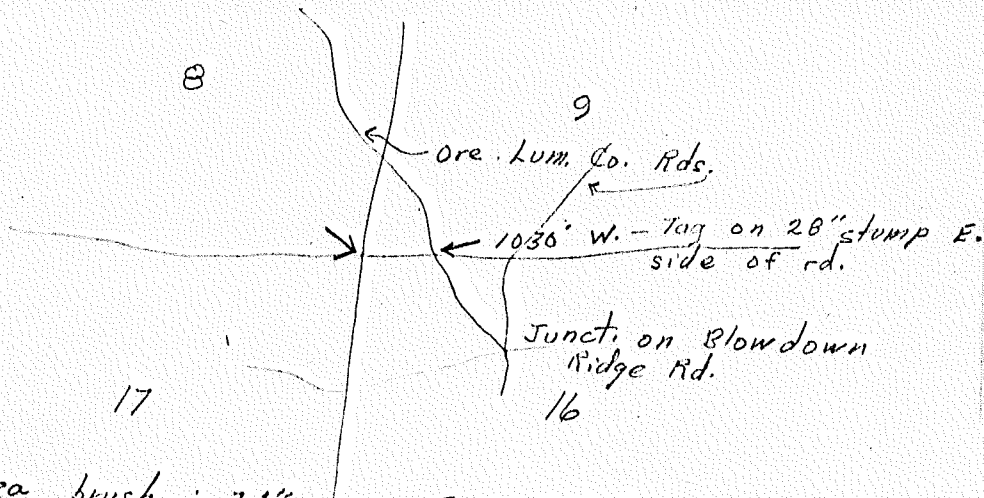 8
9
Ore. Lum. Co. Rds.
1030' W. - Tag on 28" stump E.
side of rd.
Junct. on Blowdown
Ridge Rd.
17
16
brush